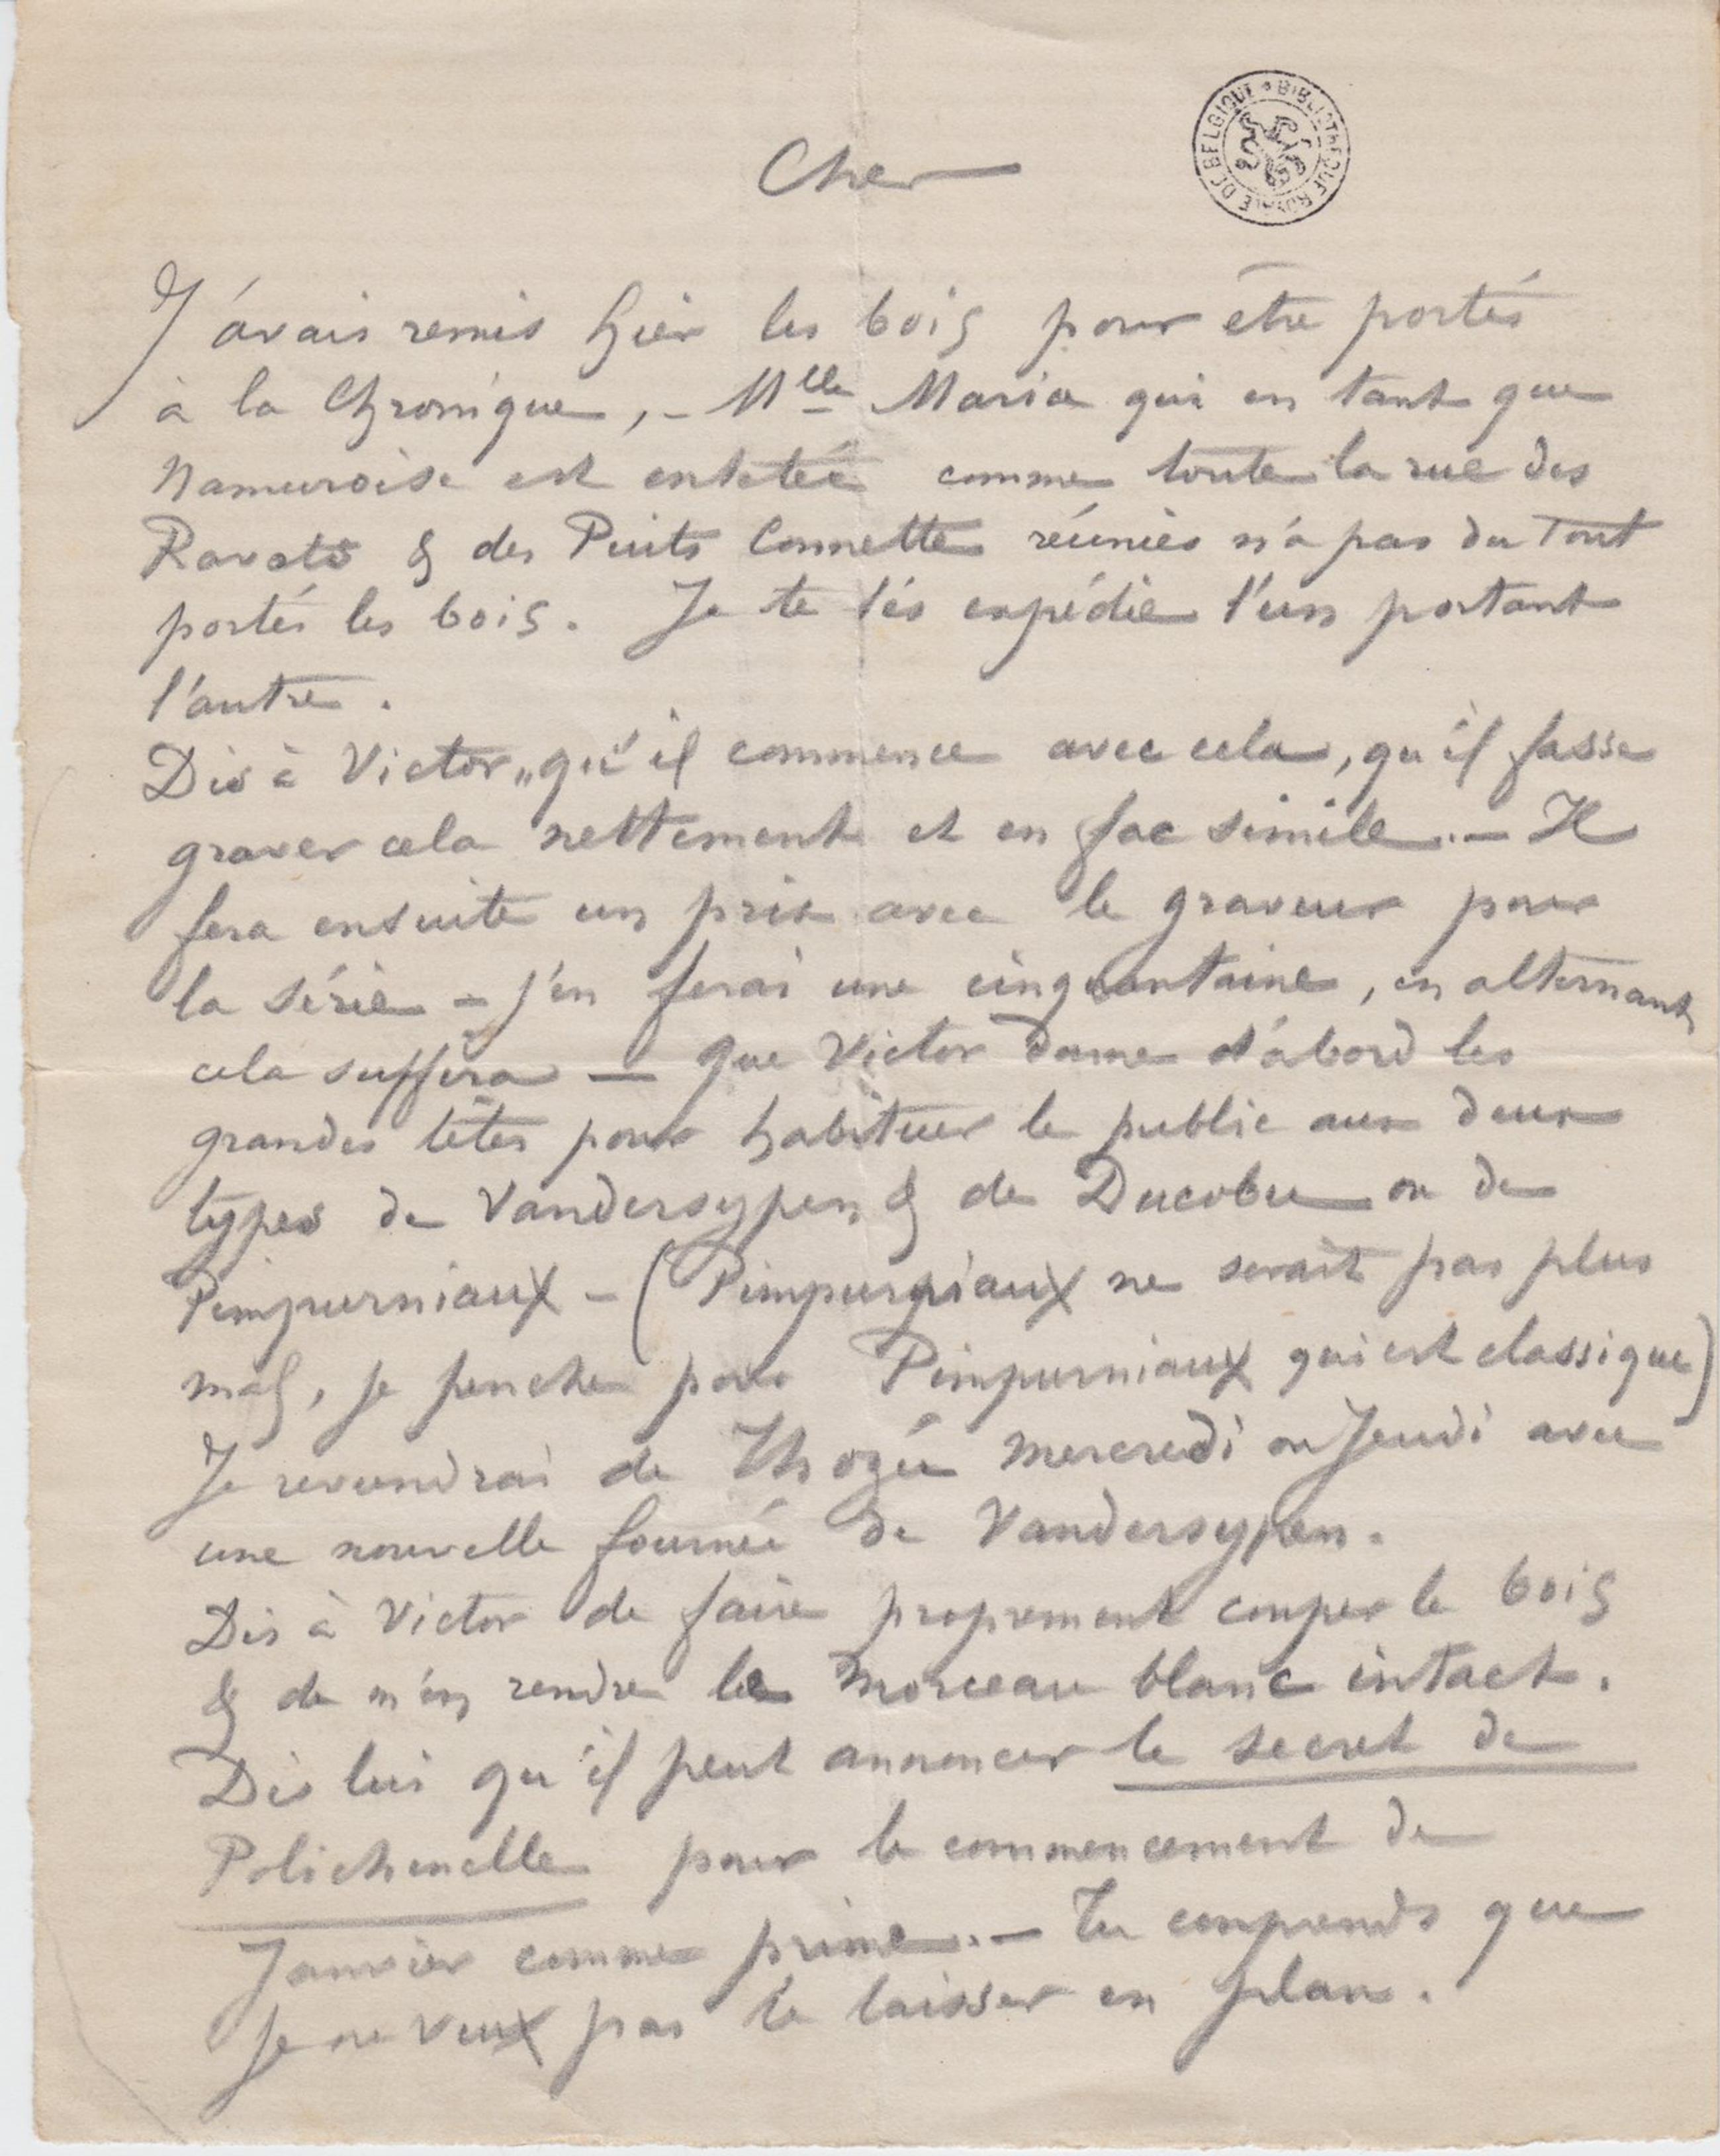 BIBLIOTHEQUE ROYALE DE BELGIQUE
Cher
J'avais remis hier les bois pour être portés
à la Chronique, - Mlle Maria qui en tant que
Namuroise est entetée comme toute la rue des
Ravets & des Puits Connette réunies n'a pas du tout
portés les bois. Je te les expédie l'un portant
l'autre.
Dis à Victor „qu'il commence avec cela, qu'il fasse
graver cela nettement et en fac simile. - Il
fera ensuite un prix avec le graveur pour
la série - j'en ferai une cinquantaine, en alternant
cela suffira - que Victor donne d'abord les
grandes têtes pour habituer le public aux deux
types de Vandersypen & de Ducobu ou de
Pimpurniaux - (Pimpurniaux ne serait pas plus
mal, je penche pour Pimpurniaux qui est classique)
Je reviendrai de Thozée mercredi ou Jeudi avec
une nouvelle fournée de Vandersypen.
Dis à Victor de faire proprement couper le bois
& de m'en rendre le morceau blanc intact.
Dis lui qu'il peut annoncer le secret de
Polichenelle pour le commencement de
Janvier comme prime. - Tu comprends que
je ne veux pas te laisser en plan.